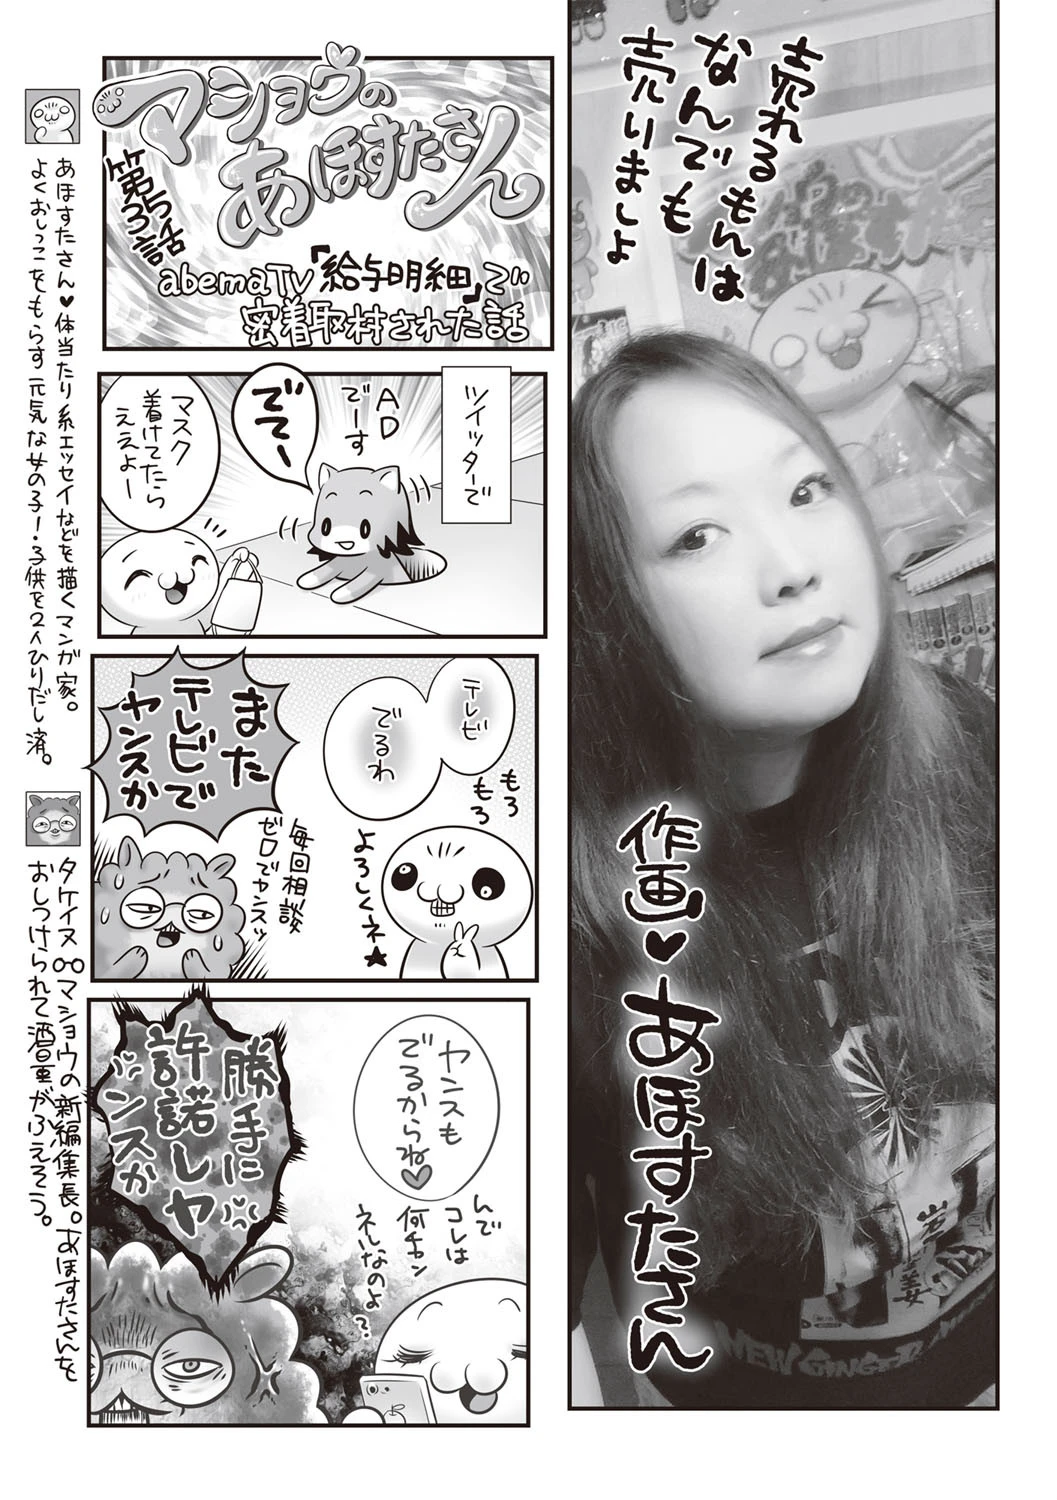 売れるもんは
なんでも
売りまっしょ
作画♥あほすたさん
マショウの
あほすたさん
第35話
abemaTV「給与明細」で
密着取材された話
ツイッターで
ADでーす
でてー
マスク
着けてたら
ええよー
テレビ
でるわ
もろもろ
よろしくネ★
また
テレビで
ヤンスか
毎回相談
ゼロでヤンスッ
ヤンスも
でるからね♡
んで
コレは
何チャン
ネルなのよ?
勝手に
許諾しヤ
ンスか
あほすたさん♥体当たり系エッセイなどを描くマンガ家。
よくおしっこをもらす元気な女の子!子供を2人ひりだし済。
タケイヌ マショウの新編集長。あほすたさんを
おしつけられて酒量がふえてそう。
岩
姜
NEW GINGER